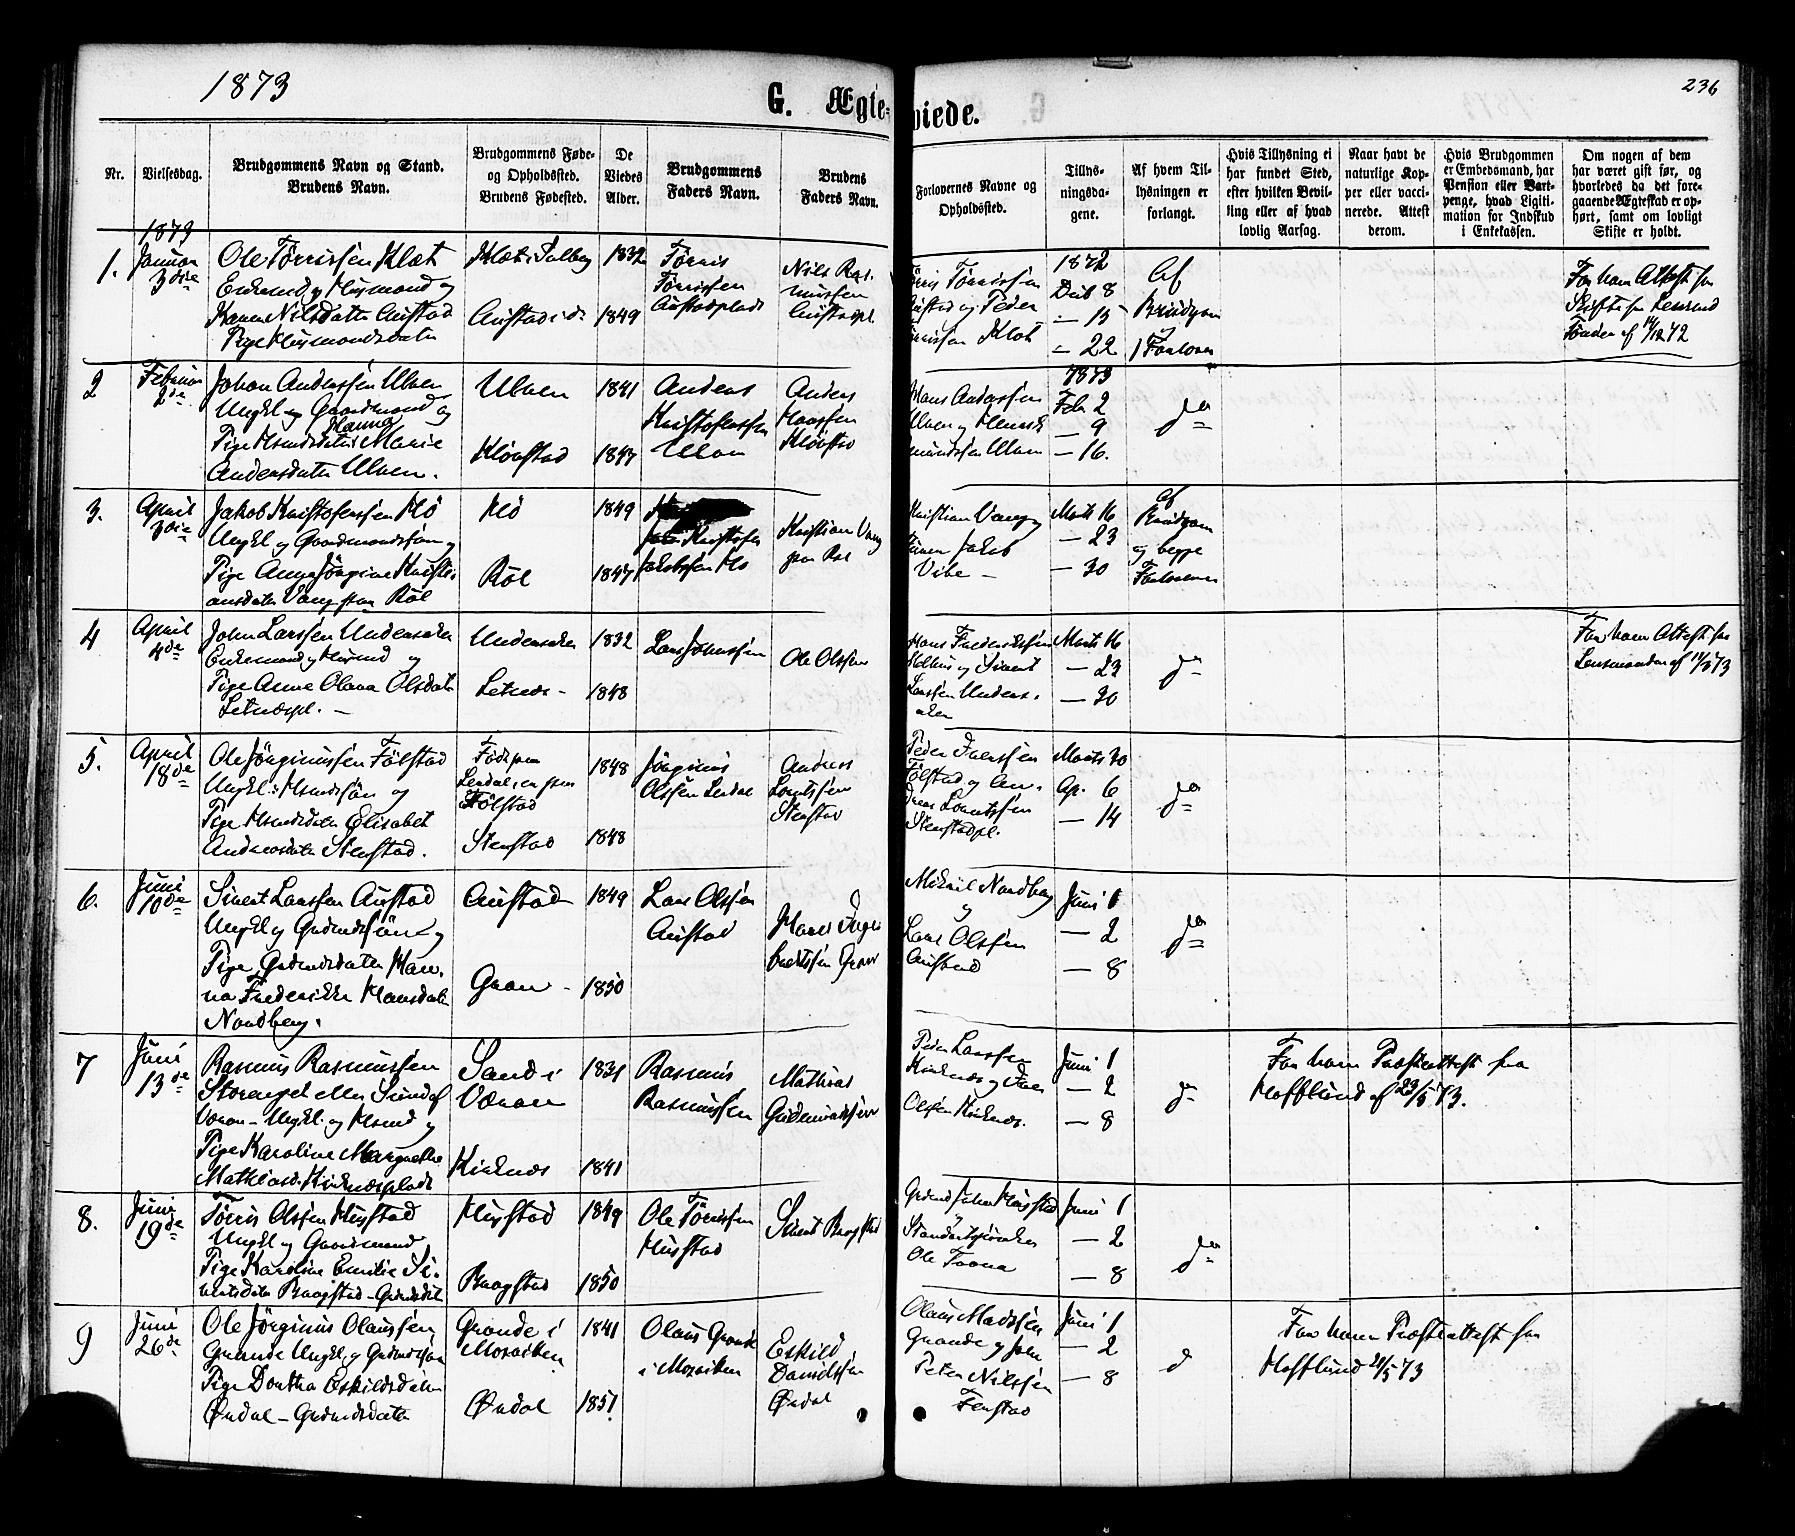 1873
G. Ægte-
viede.
236
Nr.
Vielsesdag.
Brudgommens Navn og Stand.
Brudens Navn.
Brudgommens Føde-
og Opholdssted.
Brudens Fødested.
De
Viedes
Alder.
Brudgommens
Faders Navn.
Brudens
Faders Navn.
Forlovernes Navne og
Opholdssted.
Tillys-
ningsda-
gene.
Af hvem Til-
lysningen er
forlangt.
Hvis Tillysning ei
har fundet Sted,
efter hvilken Bevil-
ling eller af hvad
lovlig Aarsag.
Naar havt de
naturlige Kop-
per eller vacci-
nerede. Attest
derom.
Hvis Brudgommen
er Embedsmand, har
Pension eller Vart-
penge, hvad Ligiti-
mation for Indskud
i Enkekassen.
Om nogen af dem
har været gift før, og
hvorledes da det fore-
gaaende Ægteskab er op-
hørt, samt om lovligt
Skifte er holdt.
1873
1.
Januar
3die
Ole Tørrissen Klæt
Enkemand og Husmand og
Karen Nilsdatter Austad
Pige Husmandsdatter
Klæt i
Austad
1832
1849
Tørris
Tørrissen
Austadplads
Nils Ras-
mussen
Austadpl
Tørrissen
Austad og Peder
Tørrissen Klæt
1872
Decb 8
— 15
— 22
Af
Brudgom
Forlover
For ham Attest fra
Skifte fra Lensmd
af 14/12 72
2
Februar
2de
Johan Anderssen Ulven
Ungkl og Gaardmand og
Pige Hanna Marie
Andersdatter Ulven.
Ulven
Kløvstad
1841
1847
Anders
Kristofersen
Ulven
Anders
Haassen
Kløvstad
Hans Anderssen
Ulven og Henrik
Ulven
1873
Feb 2
— 9
— 16.
do
3.
April
3die
Jakob Kristofersen Mo
Ungkl og Gaardmandssøn og
Pige Anna Jørgine Kristi-
ansdatter Vang fra Røl
Mo
Røl
1849
1847
Kristofer
Jakobssen Mo
Kristian Vang
paa Røl
Kristian Vang og
Jakob
Vibe —
Marts 16
— 23
— 30
af
Brudgom
og begge
Forlovere
4
April
4de
John Larssen Undersaker
Enkemand og Husmd og
Pige Anne Olava Olsdatter
Letnæspl. —
Undersaker
Letnæs —
1832
1848
Lars Johnssen
Ole Olssen
Hans Frederikssen
og Sivert
Larssen Unders-
aker
Marts 16
— 23
— 30
do
For ham Attest fra
Lensmanden af
5.
April
18de
Ole Jørginussen Følstad
Ungkl. Hsmdssøn og
Pige Hsmdsdatter Elisabet
Andreasdatter Stenstad.
Født paa
Lerdal, er paa
Følstad
Stenstad
1848
1848
Jørginus
Olssen Lerdal
Andreas
Lorntssen
Stenstad
Peder Iverssen
Følstad og An-
dreas Lorntssen
Stenstadpl.
Marts 30
Ap. 6
— 14
do
6.
Juni
10de
Sivert Larssen Austad
Ungkl og Grdmdssøn og
Pige Grdmdsdatter Han-
na Frederikke Hansdatter
Nordberg.
Austad
Gran —
1849
1850
Lars Olssen
Austad
Hans Inge-
brektssen Gran
Mikael Nordberg
og
Lars Olssen
Austad
Juni 1
— 2
— 8
do
7
Juni
13de
Rasmus Rasmussen
eller Sundaf
— Ungkl. og Hsmd og
Pige Karoline Margrethe
Mathiasd. Kirknæsplads
Sand i
Væran
Kirknæs
1831
1841
Rasmus
Rasmussen
Mathias
Gudmundssen
Peder Larssen
Kirknæs og Iver
Olsen Kirknæs.
Juni 1
— 2
— 8
do
For ham Præsteattest fra
Hofflund af 23/5 73.
8.
Juni
19de
Tørris Olssen Husstad
Ungkl og Gaardmand
Pige Karoline Emilie Si-
vertsdatter Baagstad — Grdmdsdat
Husstad
Baagstad
1849
1850
Ole Tørrissen
Husstad
Sivert Baagstad
Husstad
Ole
Juni 1
— 2
— 8
do
9
Juni
26de
Ole Jørginus Olaussen
Grande Ungkl. og Grdmdssøn
Pige Dorthea Eskildsdatter
Ørdal — Grdmdsdatter
Grande i
Mosviken
Ørdal
1841
1851
Olaus Grande
i Mosviken
Eskild
Danielssen
Ørdal
Olaus Madssen
Grande og
Peter Nilssen
Fenstad
Juni 1
— 2
— 8
d
For ham Præsteattest fra
Hofflund 21/5 73